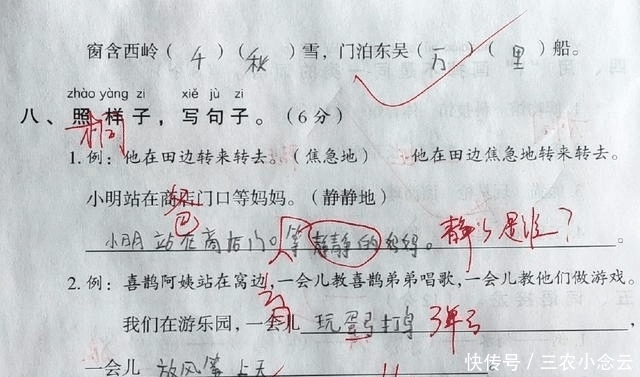 窗含西岭（千）（秋）雪，门泊东吴（万）（里）船。
zhào yàng zi xiě jù zi
八、照样子，写句子。（6分）
1. 例：他在田边转来转去。（焦急地） 他在田边焦急地转来转去。
小明站在商店门口等妈妈。（静静地）
小明站在商店门口等静静的妈妈。静静是谁？
2. 例：喜鹊阿姨站在窝边，一会儿教喜鹊弟弟唱歌，一会儿教他们做游戏。
我们在游乐园，一会儿 玩 弹弓
一会儿 放风筝上天
快传号 / 三农小念云